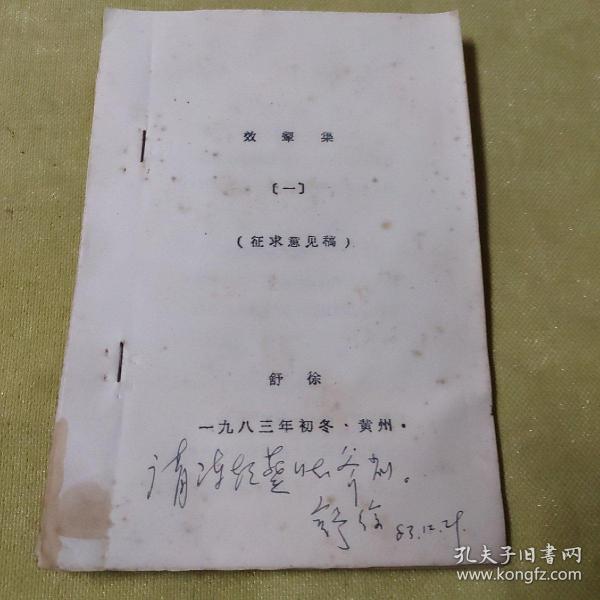 效颦集
〔一〕
(征求意见稿)
舒 徐
一九八三年初冬·黄州·
请
斧
舒徐 83.12.29.
孔夫子旧书网
www.kongfz.com